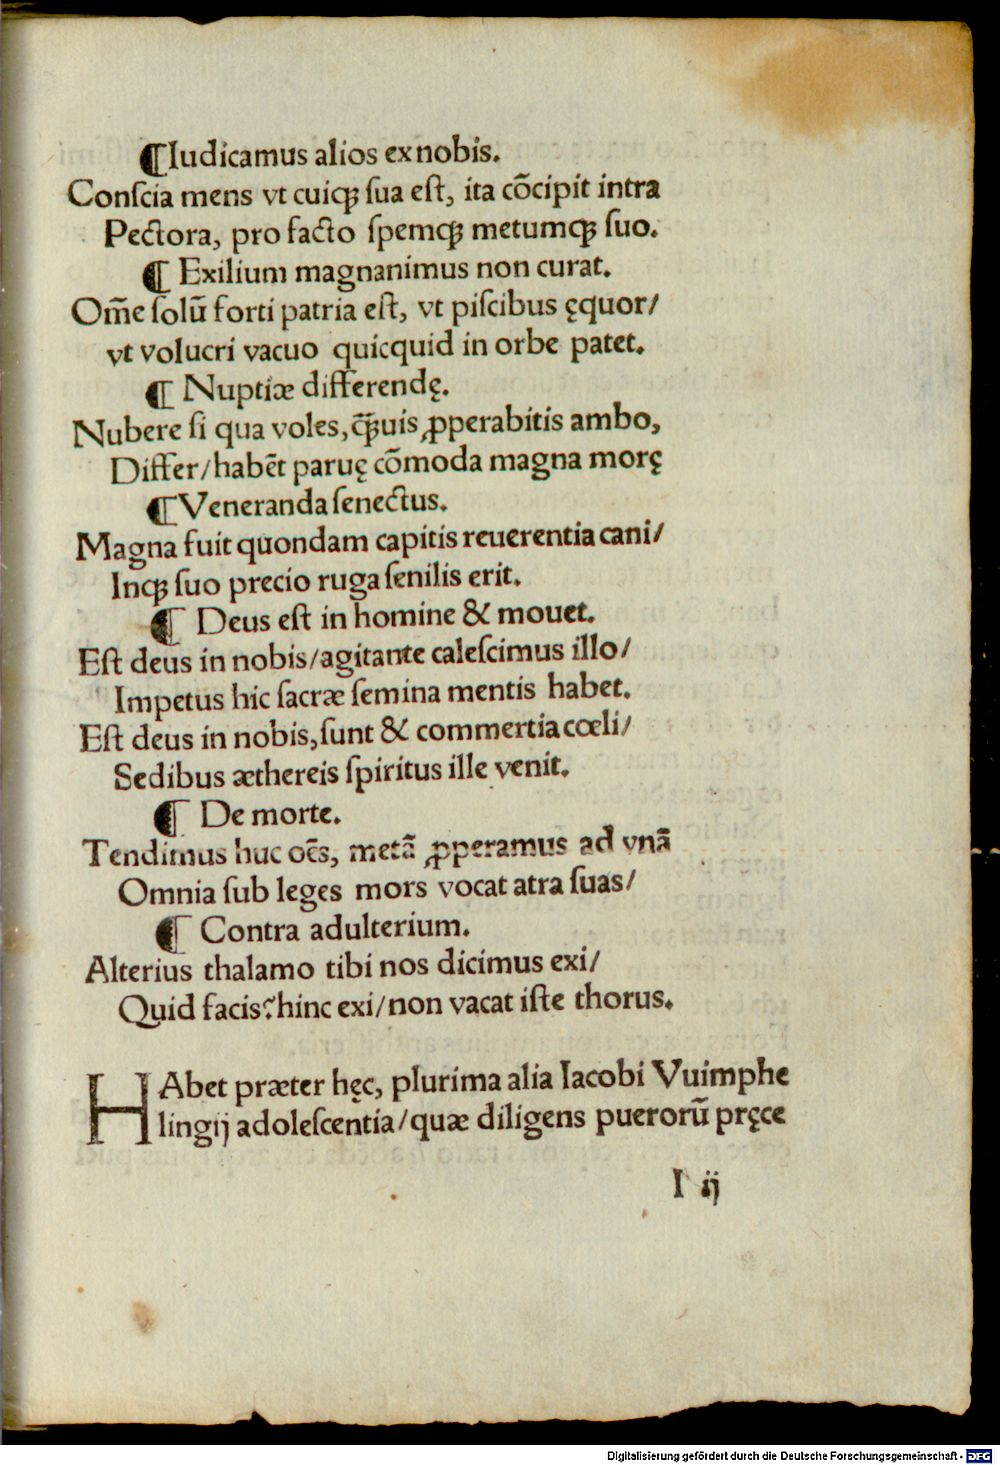 ¶Iudicamus alios ex nobis.
Conſcia mens vt cuiqꝫ ſua eſt, ita cōcipit intra
Pectora, pro facto ſpemqꝫ metumqꝫ ſuo.
¶ Exilium magnanimus non curat.
Om̄e ſolū forti patria eſt, vt piſcibus ęquor/
vt volucri vacuo quicquid in orbe patet.
¶ Nuptiæ differendę.
Nubere ſi qua voles, q̄ꝫuis ꝓperabitis ambo,
Differ/habēt paruę cōmoda magna morę
¶Veneranda ſenectus.
Magna fuit quondam capitis reuerentia cani/
Inqꝫ ſuo precio ruga ſenilis erit.
¶ Deus eſt in homine & mouet.
Eſt deus in nobis/agitante caleſcimus illo/
Impetus hic ſacræ ſemina mentis habet.
Eſt deus in nobis,ſunt & commertia cœli/
Sedibus æthereis ſpiritus ille venit.
¶ De morte.
Tendimus huc oēs, metā ꝓperamus ad vnā
Omnia ſub leges mors vocat atra ſuas/
¶ Contra adulterium.
Alterius thalamo tibi nos dicimus exi/
Quid facis?hinc exi/non vacat iſte thorus.
HAbet præter hęc, plurima alia Iacobi Vuimphe
lingij adoleſcentia/quæ diligens puerorū pręce
I ij
Digitalisierung gefördert durch die Deutsche Forschungsgemeinschaft - DFG